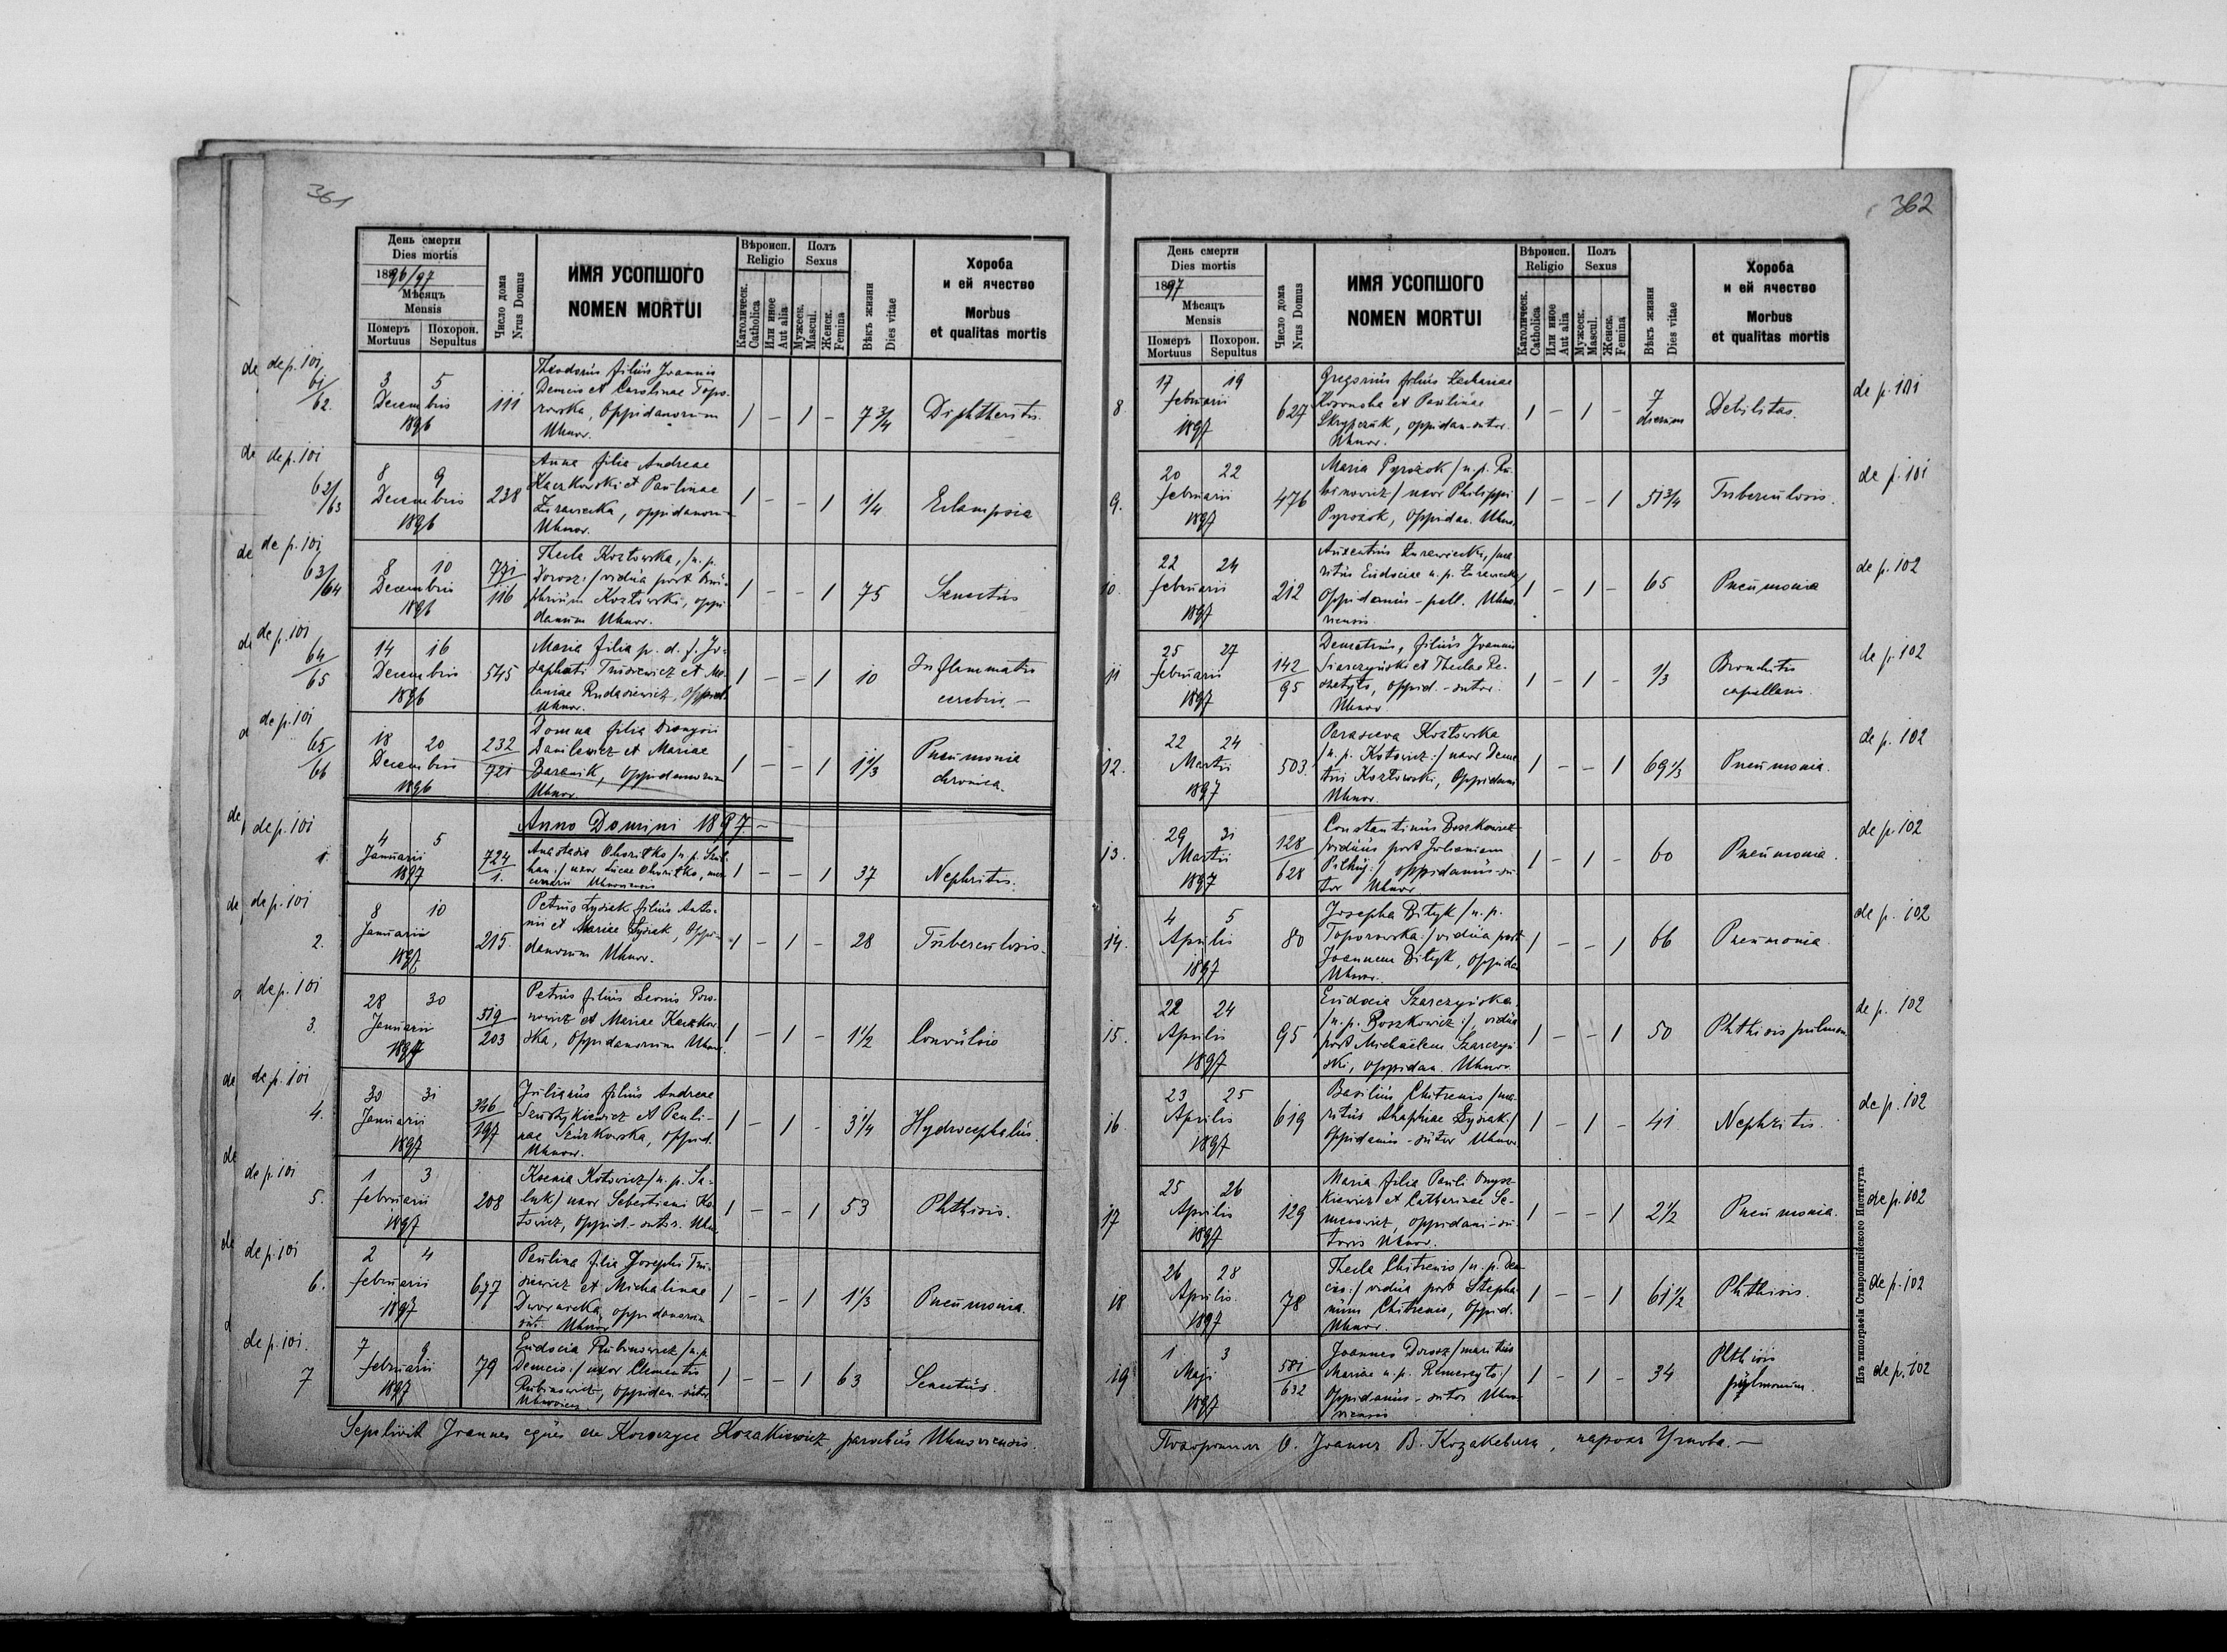 361
День смерти
Dies mortis
1896/97
Мѣсяцъ
Mensis
Померъ Похорон.
Mortuus Sepultus
Число дома
Nrus Domus
ИМЯ УСОПШОГО
NOMEN MORTUI
Вѣроисп.
Religio
Католическ.
Catholica
Или иное
Aut alia
Полъ
Sexus
Мужеск.
Mascul.
Женск.
Femina
Вѣкъ жизни
Dies vitae
Хороба
и ей ячество
Morbus
et qualitas mortis
de de p. 101
61/62.
3 5
Decembris
1896
111
Theodorus filius Joannis
Demcio et Carolinae Topo-
rowska, Oppidanorum
Uhnov.
1 - 1 - 7 3/4
Diphtheritis.
de de p. 101
62/63
8 9
Decembris
1896
238
Anna filia Andreae
Kaczkowski et Paulinae
Zurawecka, oppidanorum
Uhnov.
1 - - 1 1/4
Eclampsia
de de p. 101
63/64
8 10
Decembris
1896
771/116
Thecla Kozłowska, /n. p.
Dorosz:/ vidua post
Kozłowski, oppi-
danum Uhnov.
1 - - 1 75
Senectus
de de p. 101
64/65
14 16
Decembris
1896
545
Maria filia p. d. f. Jo-
saphati Trusiewicz et Me-
laniae Rudasiewicz, Oppid.
Uhnov.
1 - - 1 10
Inflammatio
cerebri. -
de p. 101
65/66
18 20
Decembris
1896
232/721
Domna filia Dionysii
Danilewicz et Mariae
Baranik, Oppidanorum
Uhnov.
1 - - 1 1 1/3
Pneumonia
chronica.
Anno Domini 1897 -
de de p. 101
1.
4 5
Januarii
1897
724/1.
Anastasia Ohoritko /n. p.
uxor Lucae Ohoritko, mer-
cenarii Uhnoviensis
1 - - 1 37
Nephritis.
de de p. 101
2.
8 10
Januarii
1897
215.
Petrus Łysiak filius Anto-
nii et Mariae Łysiak, Oppi-
danorum Uhnov.
1 - 1 - 28
Tuberculosis.
de p. 101
3.
28 30
Januarii
1897
519/203
Petrus filius Leonis Poro-
nowicz et Mariae Kaczkow-
ska, Oppidanorum Uhnov.
1 - 1 - 1 1/2
Convulsio
de de p. 101
4.
30 31
Januarii
1897
346/197
Julianus filius Andreae
Szustykiewicz et Pauli-
nae Szurkowska, Oppid.
Uhnov.
1 - 1 - 3 1/4
Hydrocephalus.
de de p. 101
5.
1 3
februarii
1897
208
Ksenia Kotowicz /n. p. Sa-
luk/ uxor Sebastiani Ko-
towicz, Oppid.-sutor. Uhn.
1 - - 1 53
Phthisis.
de de p. 101
6.
2 4
februarii
1897
677
Paulina filia Josephi Tru-
siewicz et Michalinae
Dwornicka, oppidanorum
sut. Uhnov
1 - - 1 1 1/3
Pneumonia.
de p. 101.
7
7 9
februarii
1897
79
Eudocia Rubinowicz /n. p.
Demcio:/ uxor Clementis
Rubinowicz, Oppidan. sutor.
Uhnoviens.
1 - - 1 63
Senectus.
Sepelivit Joannes eques de Korczyce Kozakiewicz, parochus Uhnoviensis.
362
День смерти
Dies mortis
1897
Мѣсяцъ
Mensis
Померъ Похорон.
Mortuus Sepultus
Число дома
Nrus Domus
ИМЯ УСОПШОГО
NOMEN MORTUI
Вѣроисп.
Religio
Католическ.
Catholica
Или иное
Aut alia
Полъ
Sexus
Мужеск.
Mascul.
Женск.
Femina
Вѣкъ жизни
Dies vitae
Хороба
и ей ячество
Morbus
et qualitas mortis
8
17 19
februarii
1897
627
Gregorius filius Zachariae
et Paulinae
Skrypczuk, oppidan-sutor.
Uhnov.
1 - 1 - 7
dierum
Debilitas.
de p. 101
9.
20 22
februarii
1897
476
Maria Pyrożok /n. p. Ru-
binowicz/ uxor Philippi
Pyrożok, Oppidan. Uhnov.
1 - - 1 51 3/4
Tuberculosis.
de p. 101
10.
22 24
februarii
1897
212
Auxentius Zurawecki, /ma-
ritus Eudociae n. p. Zurawecka/
Oppidanus - pell. Uhno-
viensis.
1 - 1 - 65
Pneumonia
de p. 102
11
25 27
februarii
1897
142/95
Demetrius, filius Joannis
Siarczyński et Theclae Re-
szetyło, oppid. - sutor.
Uhnov
1 - 1 - 1/3
Bronchitis
capillaris.
de p. 102
12.
22 24
Martii
1897
503.
Parasceva Kozłowska
/n. p. Kotowicz:/ uxor Deme-
trii Kozłowski, Oppidani
Uhnov.
1 - - 1 69 1/3
Pneumonia.
de p. 102
13.
29 31
Martii
1897
128/628
Constantinus Boszkowicz
/viduus post Julianam
Pitkuj:/ oppidanus-su-
tor Uhnov
1 - 1 - 60
Pneumonia.
de p. 102
14.
4 5
Aprilis
1897
80
Josepha Bityk /n. p.
Toporowska:/ vidua post
Joannem Bityk, Oppidan
Uhnov.
1 - - 1 66
Pneumonia.
de p. 102
15.
22 24
Aprilis
1897
95
Eudocia Szarczyńska
/n. p. Boszkowicz:/, vidua
post Michaëlem Szarczyń-
ski, Oppidan. Uhnov.
1 - - 1 50
Phthisis pulmon.
de p. 102
16.
23 25
Aprilis
1897
619
Basilius Chitrenis /ma-
ritus Ahaphiae Łysiak/
Oppidanus - sutor Uhnov
1 - 1 - 41
Nephritis.
de p. 102
17
25 26
Aprilis
1897
129
Maria filia Pauli Onysz-
kiewicz et Catharinae Se-
menowicz, oppidani-su-
toris Uhnov.
1 - - 1 2 1/2
Pneumonia.
de p. 102
18
26 28
Aprilis
1897
78
Thecla Chitrenis /n. p. Dem-
cio:/ vidua post Stepha-
num Chitrenis, Oppid.
Uhnov.
1 - - 1 61 1/2
Phthisis.
de p. 102
19
1 3
Maji
1897
581/632
Joannes Dorosz /maritus
Mariae n. p. Remeszyło/
Oppidanus - sutor Uhno-
viensis
1 - 1 - 34
Phthisis
pulmonum.
de p. 102
Похоронилъ О. Іоаннъ В. Козакевичъ, парохъ Угнова. -
Изъ типографіи Ставропигійского Института